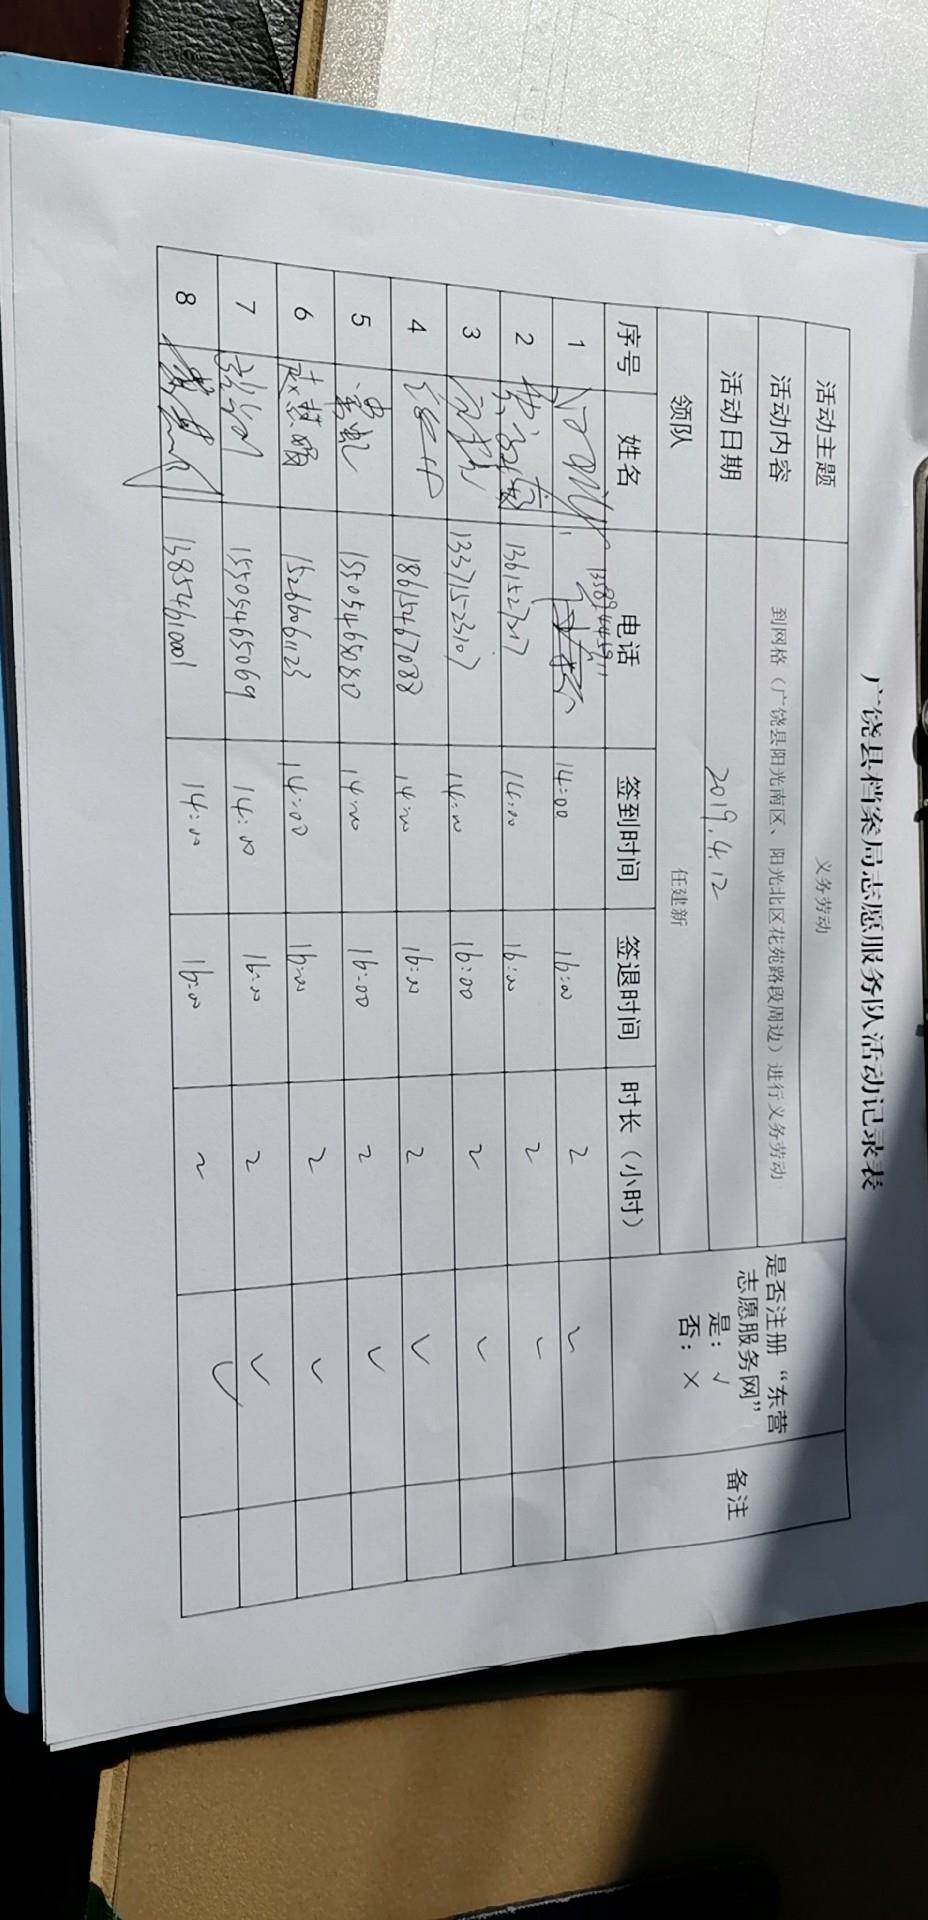 广饶县档案局志愿服务队活动记录表
活动主题 义务劳动 是否注册“东营志愿服务网” 是：√ 否：× 备注
活动内容 到网格（广饶县阳光南区、阳光北区花苑路段周边）进行义务劳动
活动日期 2019.4.12
领队 任建新
序号 姓名 电话 签到时间 签退时间 时长（小时）
1 14:00 16:00 2 ✓
2 14:00 16:00 2 ✓
3 13371523107 14:00 16:00 2 ✓
4 18615467088 14:00 16:00 2 ✓
5 15505468080 14:00 16:00 2 ✓
6 赵慧敏 15266061123 14:00 16:00 2 ✓
7 15505465069 14:00 16:00 2 ✓
8 13854610001 14:00 16:00 2 ✓